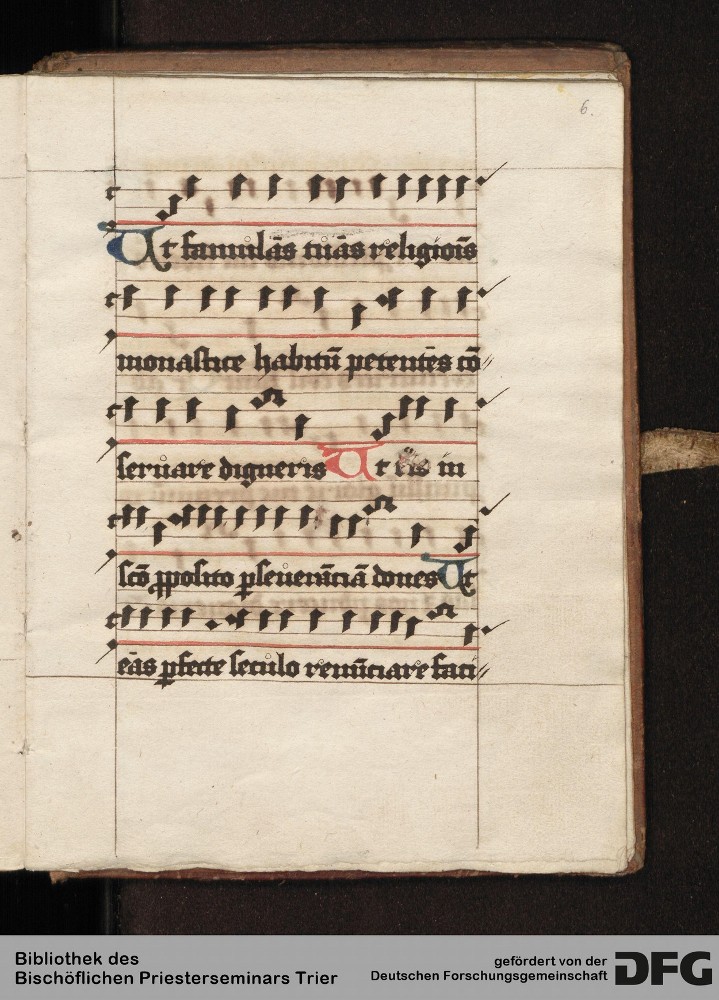 6.
Ut famulas tuas religiōis
monastice habitū petentes cō//
seruare digneris Ut eis in
scō p̱posito p̱seuerātiā dones Ut
eas p̱fecte seculo renūciare faci//
Bibliothek des
Bischöflichen Priesterseminars Trier
gefördert von der
Deutschen Forschungsgemeinschaft
DFG